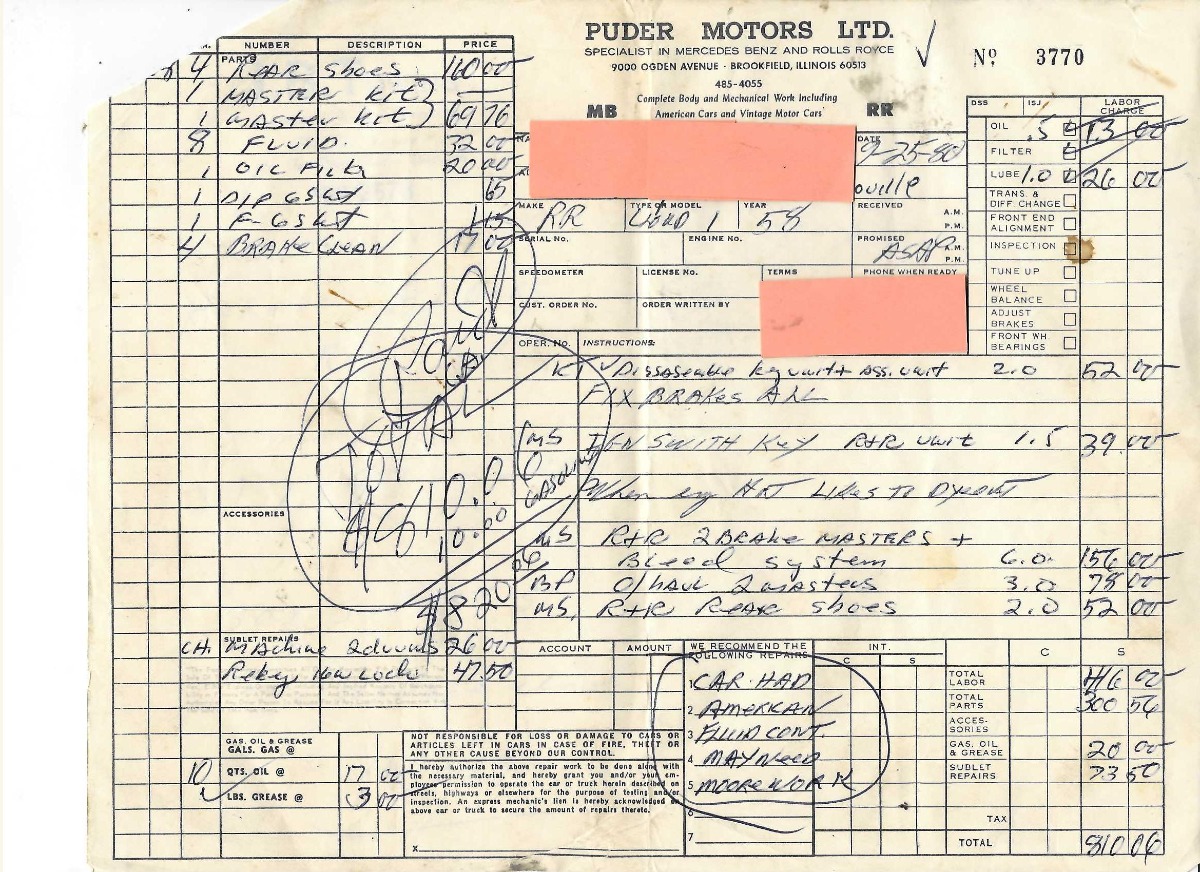 PUDER MOTORS LTD.
SPECIALIST IN MERCEDES BENZ AND ROLLS ROYCE
9000 OGDEN AVENUE · BROOKFIELD, ILLINOIS 60513
485-4055
Complete Body and Mechanical Work Including
American Cars and Vintage Motor Cars
MB
RR
No 3770
NUMBER DESCRIPTION PRICE
PARTS
4 REAR Shoes 160 00
1 MASTER kit
1 MASTER kit 69 76
8 FLUID. 32 00
1 OIL Filter 20 00
1 DIP GSket 65
1 GSket 1 15
4 BRAKE CLEAN 17 00
Paid
TOTAL
810.06
10.00
GASOLINE
820 06
ACCESSORIES
SUBLET REPAIRS
CH. MAchine 2 drums 26 00
Rekey new locks 47.50
GAS, OIL & GREASE
GALS. GAS @
10 QTS. OIL @ 17 00
1 LBS. GREASE @ 3 00
DATE
9-25-80
oville
MAKE RR
TYPE OR MODEL Cloud 1
YEAR 58
RECEIVED A.M. P.M.
SERIAL No. ENGINE No.
PROMISED ASAP A.M. P.M.
SPEEDOMETER LICENSE No. TERMS PHONE WHEN READY
CUST. ORDER No. ORDER WRITTEN BY
DSS ISJ LABOR CHARGE
OIL .5 13 00
FILTER
LUBE 1.0 26 00
TRANS. & DIFF. CHANGE
FRONT END ALIGNMENT
INSPECTION
TUNE UP
WHEEL BALANCE
ADJUST BRAKES
FRONT WH. BEARINGS
OPER. No. INSTRUCTIONS:
KT Dissaseable key unit + Ass. unit 2.0 52 00
FIX BRAKES ALL
MS IGN SWITH KEY R+R unit 1.5 39.00
When eng Hot LIKES TO
MS R+R 2 BRAKE MASTERS +
Bleed system 6.0 156 00
BP O/HAUL 2 masters 3.0 78 00
MS. R+R REAR shoes 2.0 52 00
ACCOUNT AMOUNT
WE RECOMMEND THE FOLLOWING REPAIRS
1 CAR HAD
2 AMERICAN
3 FLUID CONT.
4 MAY NEED
5 MOORE WORK
6
7
INT.
C S
C S
TOTAL LABOR 416 00
TOTAL PARTS 300 56
ACCESSORIES
GAS, OIL & GREASE 20 00
SUBLET REPAIRS 73 50
TAX
TOTAL 810 06
NOT RESPONSIBLE FOR LOSS OR DAMAGE TO CARS OR ARTICLES LEFT IN CARS IN CASE OF FIRE, THEFT OR ANY OTHER CAUSE BEYOND OUR CONTROL.
I hereby authorize the above repair work to be done along with
the necessary material, and hereby grant you and/or your em-
ployees permission to operate the car or truck herein described on
streets, highways or elsewhere for the purpose of testing and/or
inspection. An express mechanic's lien is hereby acknowledged on
above car or truck to secure the amount of repairs thereto.
x